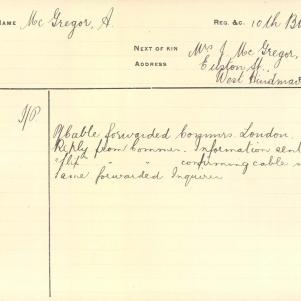 NAME Mc Gregor, A. REG. &C. 10th B
NEXT OF KIN Mrs J. Mc Gregor,
ADDRESS Euston St.
West Hindmar
Cable forwarded Commrs. London.
Reply from Commr. Information sent
" " confirming cable
Same forwarded Inquirer